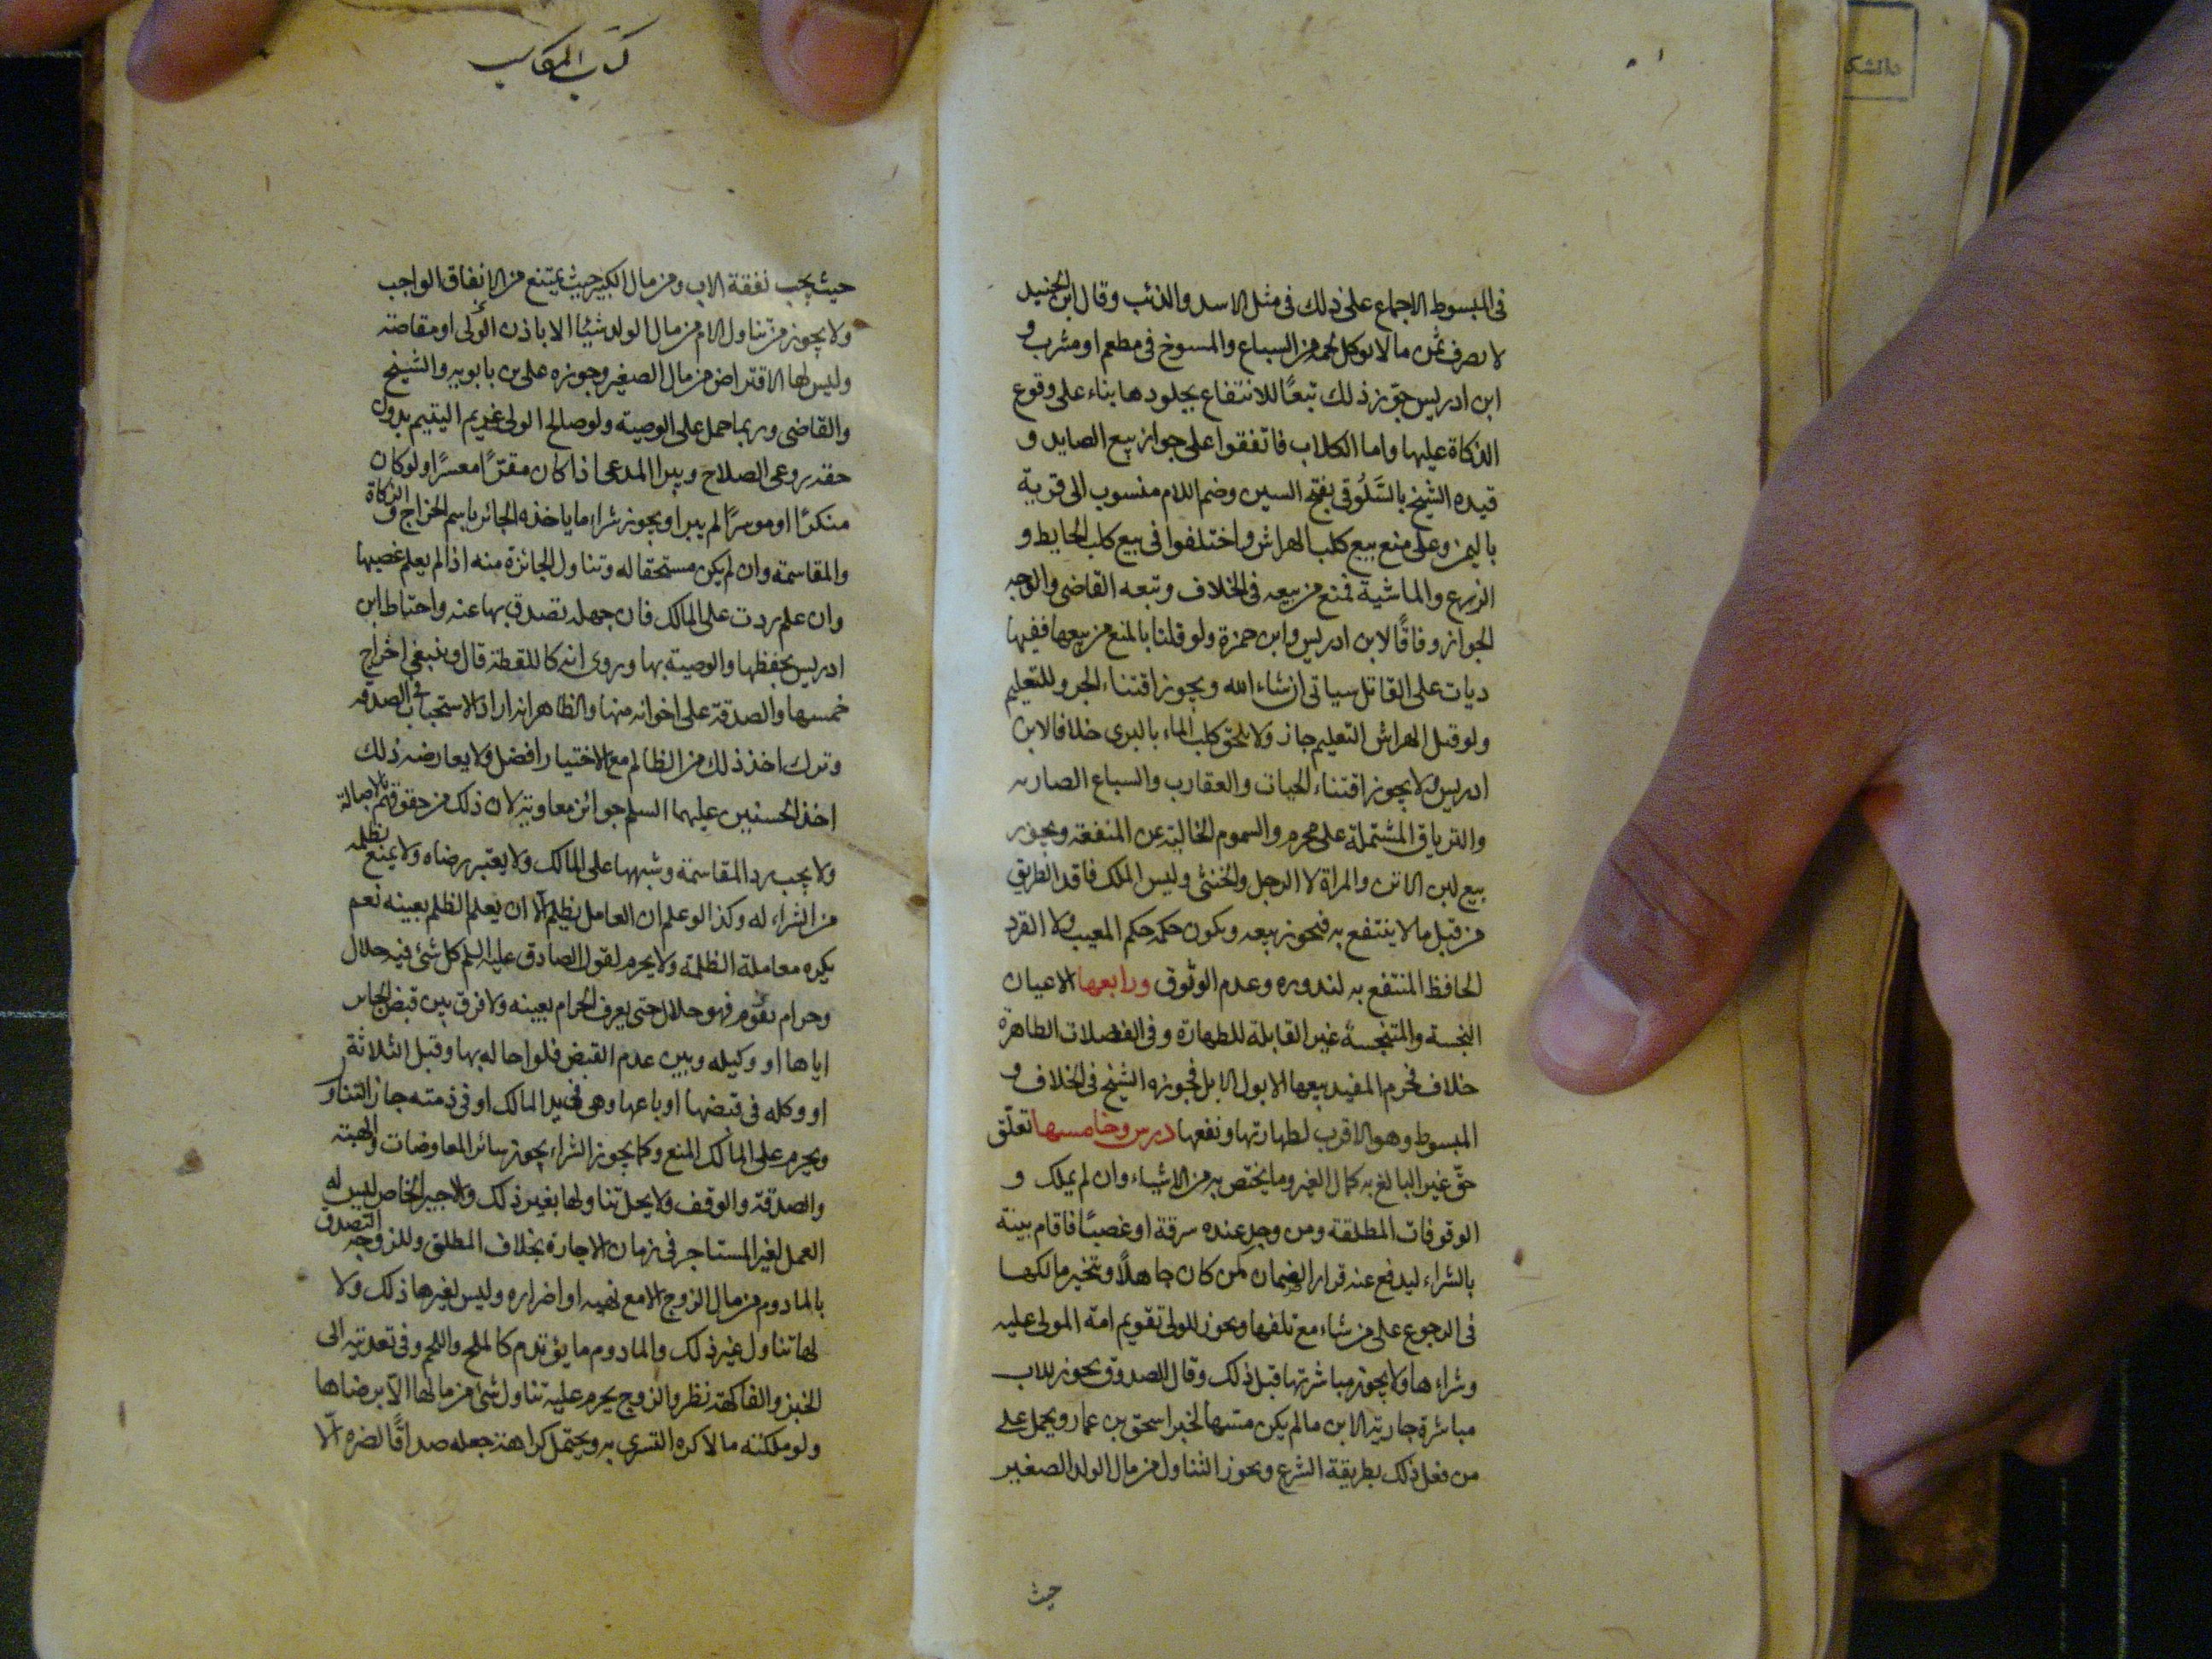 في المبسوط الاجماع على ذلك في مثل الاسد والذئب وقال ابن الجنيد
لا يصرف ثمن ما لا يوكل لحمه من السباع والمسوخ في مطعم او مشرب و
ابن ادريس جوّز ذلك تبعًا للانتفاع بجلودها بناء على وقوع
الذكاة عليها واما الكلاب فاتفقوا على جواز بيع الصايد و
قيده الشيخ بالسَّلُوقي بفتح السين وضم اللام منسوب الى قرية
باليمن وعلى منع بيع كلب الهراش واختلفوا في بيع كلب الحايط و
الزرع والماشية فمنع من بيعه في الخلاف وتبعه القاضي والوجه
الجواز وفاقًا لابن ادريس وابن حمزة ولو قلنا بالمنع من بيعها ففيها
ديات على القاتل سياتى ان شاء الله ويجوز اقتناء الجرو للتعليم
ولو قبل الهراش التعليم جاز ولا يلحق كلب الماء بالبري خلافا لابن
ادريس ولا يجوز اقتناء الحيات والعقارب والسباع الضاريه
والترياق المشتملة على محرم والسموم الخالية عن المنفعة ويجوز
بيع لبن الاتن والمراة لا الرجل والخنثى وليس الملك فاقد الطريق
من قبل ما لا ينتفع به فيجوز بيعه ويكون حكمه حكم المعيب ولا القرد
الحافظ المنتفع به لندوره وعدم الوثوق ورابعها الاعيان
النجسة والمتنجسة غير القابلة للطهارة وفي الفضلات الطاهرة
خلاف فحرم المفيد بيعها الا بول الابل فجوزه الشيخ في الخلاف و
المبسوط وهو الاقرب لطهارتها ونفعها درس وخامسها تعلّق
حقّ غير البائع به كمال الغير وما يختص به من الاشياء وان لم يملك و
الوقوفات المطلقة ومن وجد عنده سرقة او غصبًا فاقام بينة
بالشراء ليدفع عنه قرار الضمان لمن كان جاهلًا ويتخير مالكها
في الرجوع على من شاء مع تلفها ويجوز للولى تقويم امة المولى عليه
وشراءها ولا يجوز مباشرتها قبل ذلك وقال الصدوق يجوز للاب
مباشرة جارية الابن ما لم يكن مسها لخبر اسحق بن عمار ويحمل على
من فعل ذلك بطريقة الشرع ويجوز التناول من مال الولد الصغير
حيث
كتاب المكاسب
حيث يجب نفقة الاب ومن مال الكبير حيث يمتنع من الانفاق الواجب
ولا يجوز من تناول الام من مال الولد شيئا الا باذن الولى او مقاصة
وليس لها الاقتراض من مال الصغير وجوزه على بن بابويه والشيخ
والقاضى وربما حمل على الوصية ولو صالح الولى غريم اليتيم بدون
حقه روعى الصلاح ويبرا المدعى اذا كان مقرًّا معسرًا ولو كان
منكرًا او موسرًا لم يبرا ويجوز شراء ما ياخذه الجائر باسم الخراج والزكاة
والمقاسمة وان لم يكن مستحقا له وتناول الجائزة منه اذا لم يعلم غصبها
وان علم ردت على المالك فان جهله تصدق بها عنه واحتاط ابن
ادريس بحفظها والوصية بها وروى انه كاللقطة قال وينبغي اخراج
خمسها والصدقة على اخوانه منها والظاهر انه اراد الاستحباب في الصدقه
وترك اخذ ذلك من الظالم مع الاختيار افضل ولا يعارضه ذلك
اخذ الحسنين عليهما السلم جوائز معاوية لان ذلك من حقوقهم بالاصالة
ولا يجب رد المقاسمة وشبهها على المالك ولا يعتبر رضاه ولا يمنع تظلمه
من الشراء له وكذا لو علم ان العامل يظلم الا ان يعلم الظلم بعينه نعم
يكره معاملة الظلمة ولا يحرم لقول الصادق عليه السلم كل شئ فيه حلال
وحرام فهو حلال حتى يعرف الحرام بعينه ولا فرق بين قبض الجائر
اياها او وكيله وبين عدم القبض فلو احاله بها وقبل الثلاثة
او وكله في قبضها او باعها وهي في يد المالك او في ذمته جاز التناول
ويحرم على المالك المنع وكما يجوز الشراء يجوز سائر المعاوضات والهبة
والصدقة والوقف ولا يحل تناولها بغير ذلك والاجير الخاص ليس له
العمل لغير المستاجر في زمان الاجارة بخلاف المطلق وللزوجة التصدق
بالمادوم من مال الزوج الا مع نهيه او اضراره وليس لغيرها ذلك ولا
لها تناول غير ذلك والمادوم ما يؤتدم كالملح واللحم وفي تعديته الى
الخبز والفاكهة نظر والزوج يحرم عليه تناول شئ من مالها الا برضاها
ولو ملكته مالا كره التسري به ويحتمل كراهة جعله صداقًا لضرة الّا